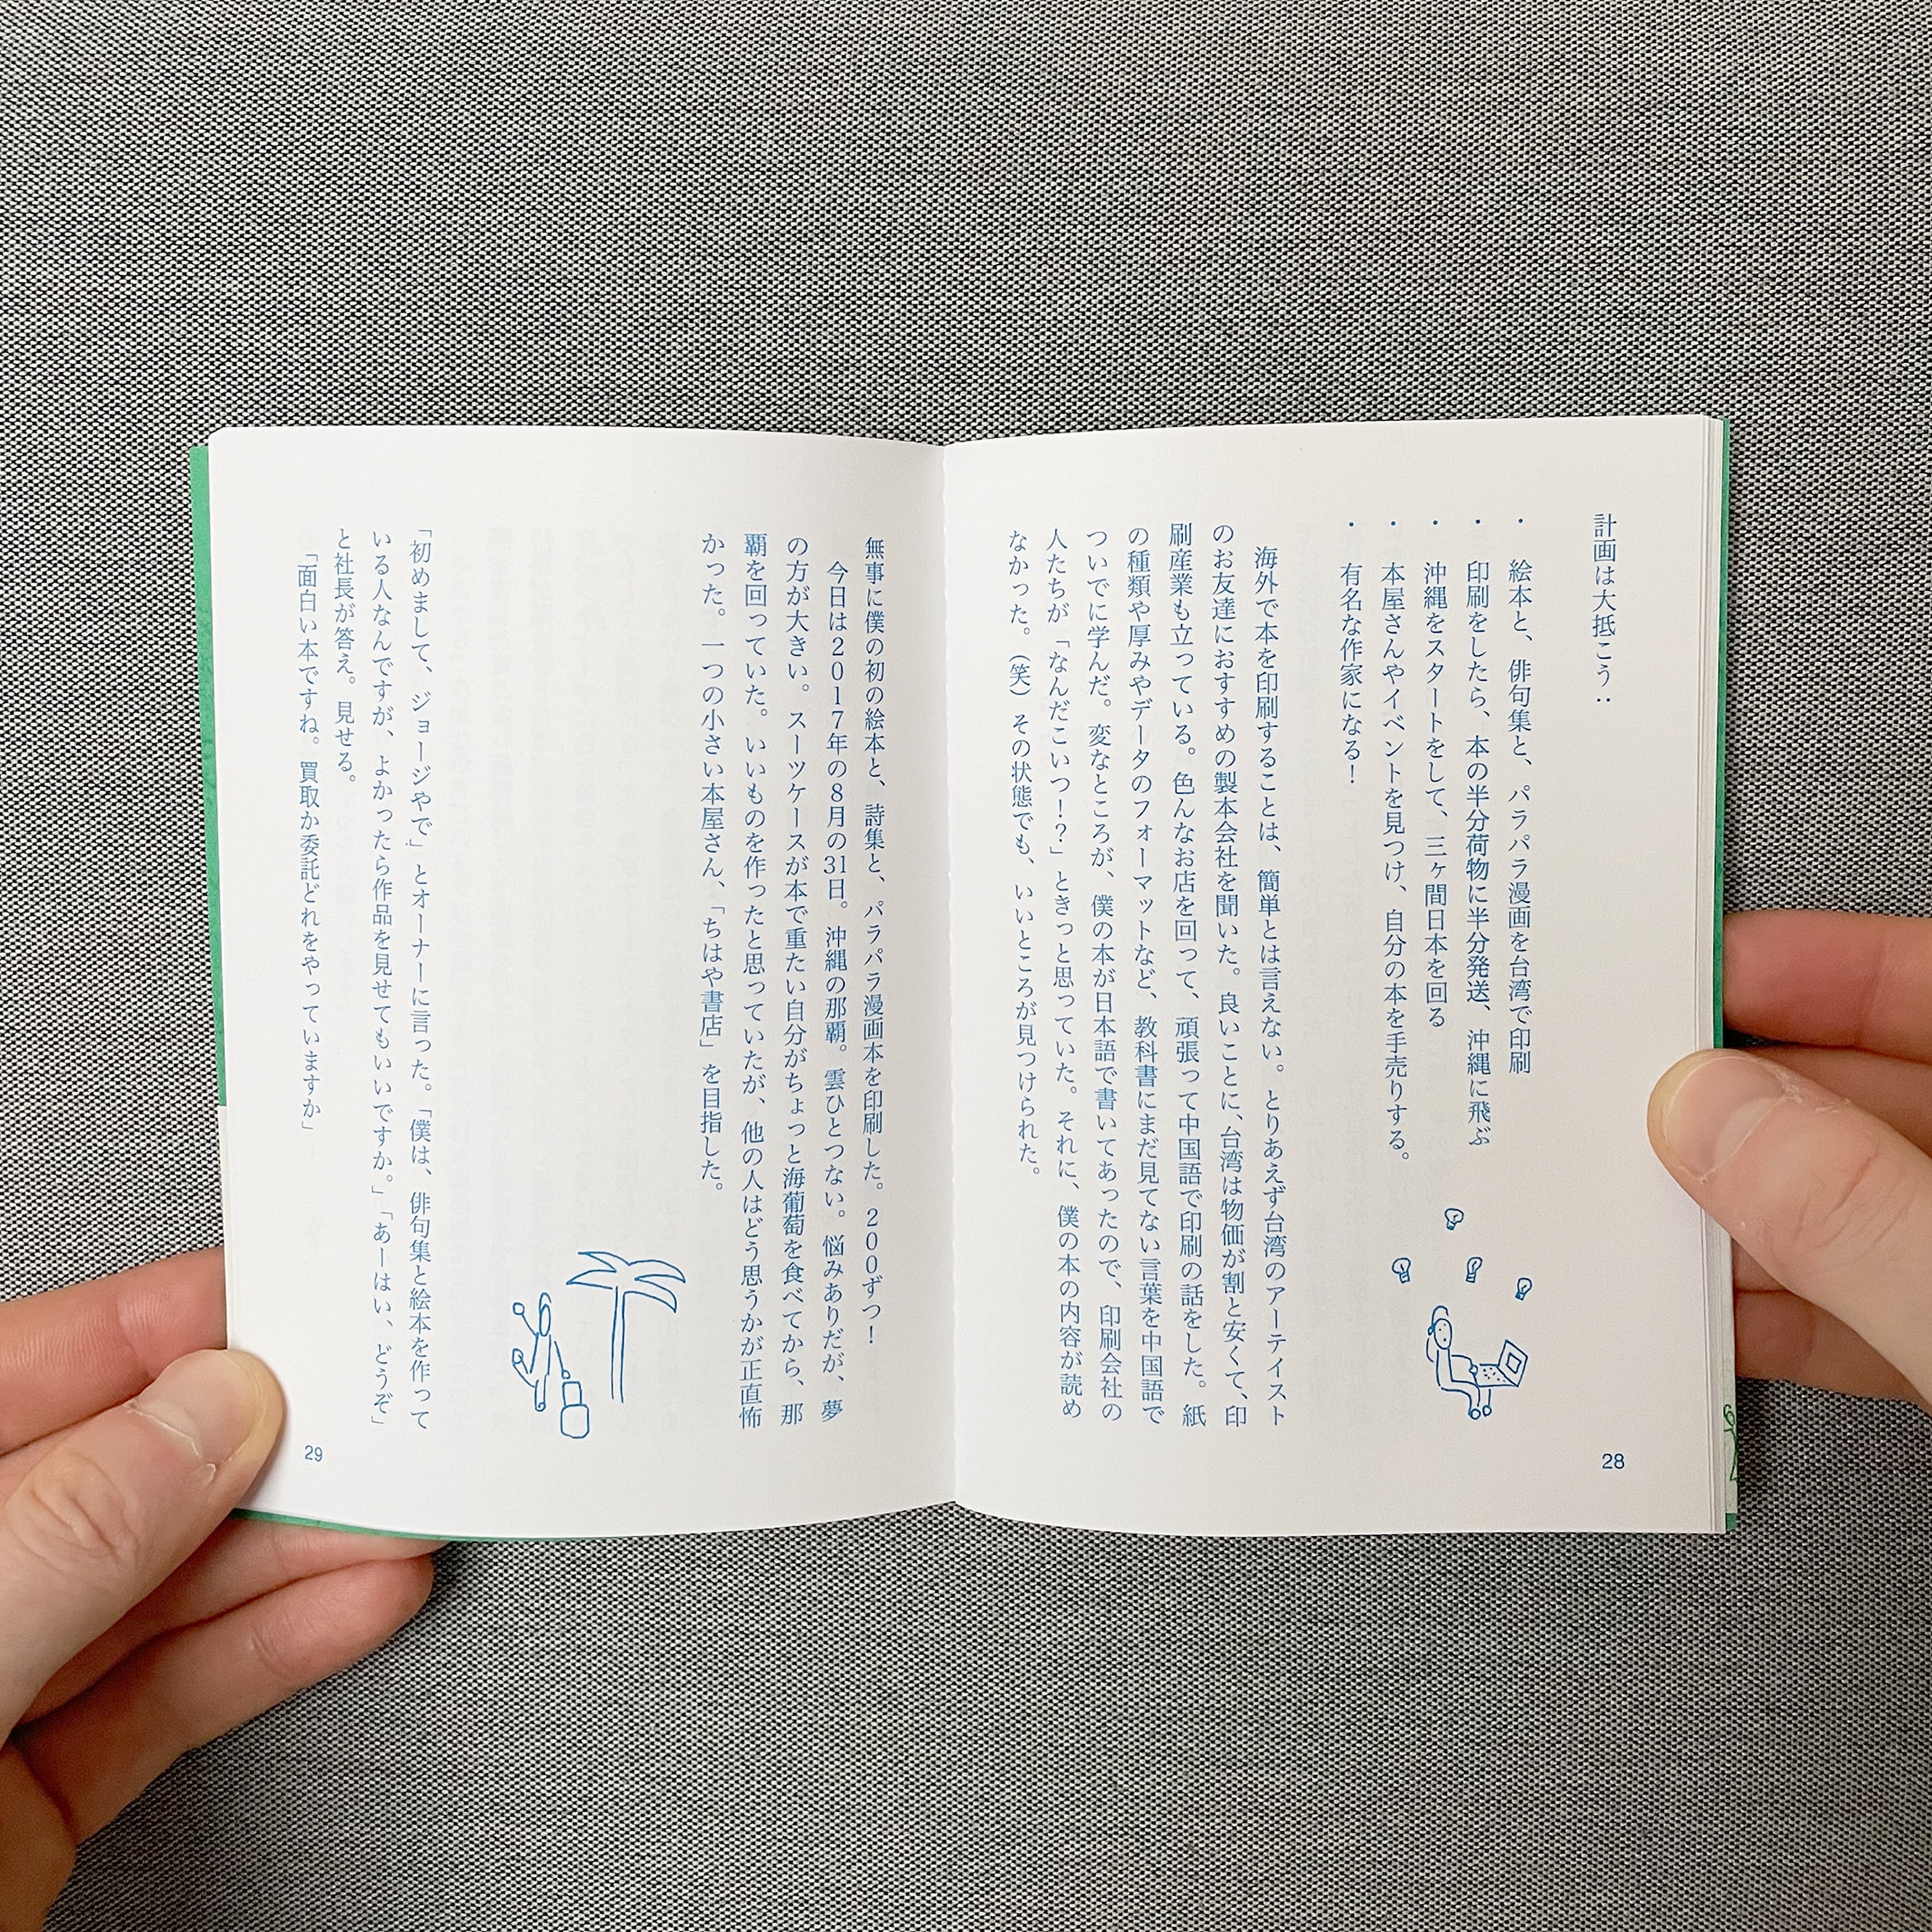 計画は大抵こう：
・ 絵本と、俳句集と、パラパラ漫画を台湾で印刷
・ 印刷をしたら、本の半分荷物に半分発送、沖縄に飛ぶ
・ 沖縄をスタートをして、三ヶ間日本を回る
・ 本屋さんやイベントを見つけ、自分の本を手売りする。
・ 有名な作家になる！
海外で本を印刷することは、簡単とは言えない。とりあえず台湾のアーテイスト
のお友達におすすめの製本会社を聞いた。良いことに、台湾は物価が割と安くて、印
刷産業も立っている。色んなお店を回って、頑張って中国語で印刷の話をした。紙
の種類や厚みやデータのフォーマットなど、教科書にまだ見てない言葉を中国語で
ついでに学んだ。変なところが、僕の本が日本語で書いてあったので、印刷会社の
人たちが「なんだこいつ！？」ときっと思っていた。それに、僕の本の内容が読め
なかった。（笑）その状態でも、いいところが見つけられた。
28
無事に僕の初の絵本と、詩集と、パラパラ漫画本を印刷した。200ずつ！
今日は2017年の8月の31日。沖縄の那覇。雲ひとつない。悩みありだが、夢
の方が大きい。スーツケースが本で重たい自分がちょっと海葡萄を食べてから、那
覇を回っていた。いいものを作ったと思っていたが、他の人はどう思うかが正直怖
かった。一つの小さい本屋さん、「ちはや書店」を目指した。
「初めまして、ジョージやで」とオーナーに言った。「僕は、俳句集と絵本を作って
いる人なんですが、よかったら作品を見せてもいいですか。」「あーはい、どうぞ」
と社長が答え。見せる。
「面白い本ですね。買取か委託どれをやっていますか」
29